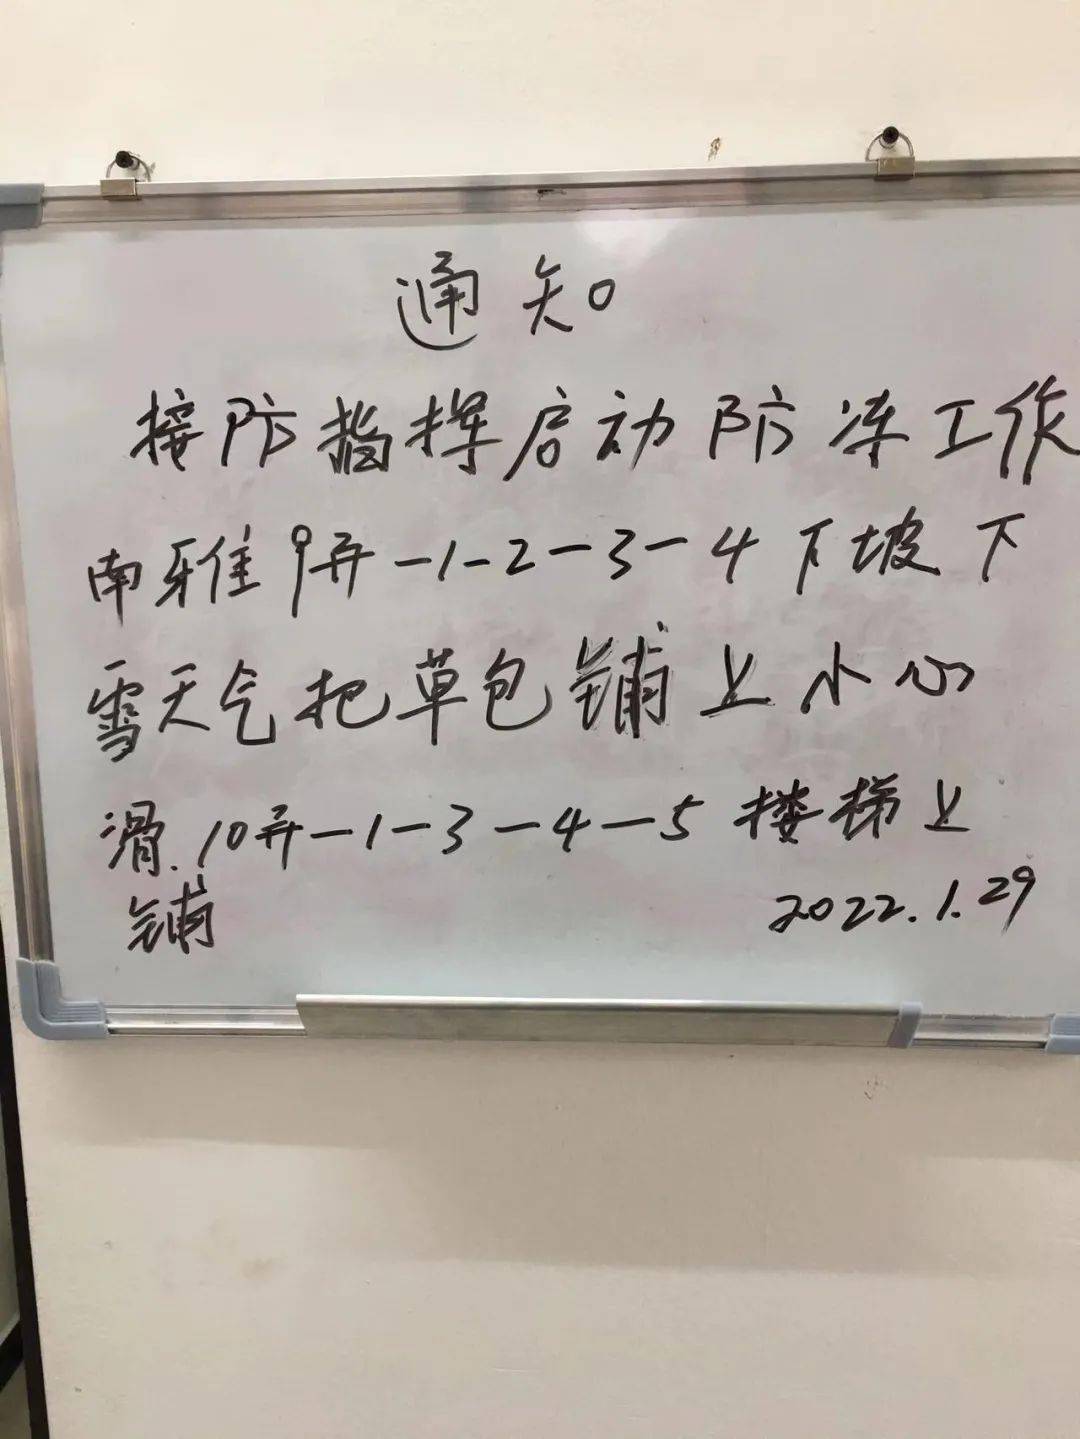 通知
接防指挥启动防冻工作
南雅9弄-1-2-3-4下坡下
雪天气把草包铺上小心
滑.10弄-1-3-4-5楼梯上
铺
2022.1.29